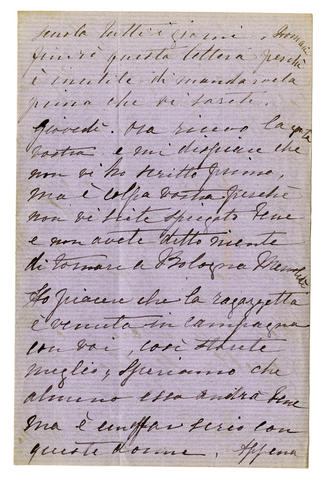 scuola tutti i giorni. Domani
finirò questa lettera perchè
è inutile di mandarvela
prima che vi sarete.
Giovedì. Ora ricevo la carta
vostra e mi dispiace che
non vi ho scritto prima,
ma è colpa vostra perchè
non vi siete spiegato bene
e non avete ditto niente
di tornare a Bologna
Ho piacere che la ragazzetta
è venuta in campagna
con voi, così starete
meglio, speriamo che
almeno essa andrà bene
ma è un affar serio con
queste donne. Appena